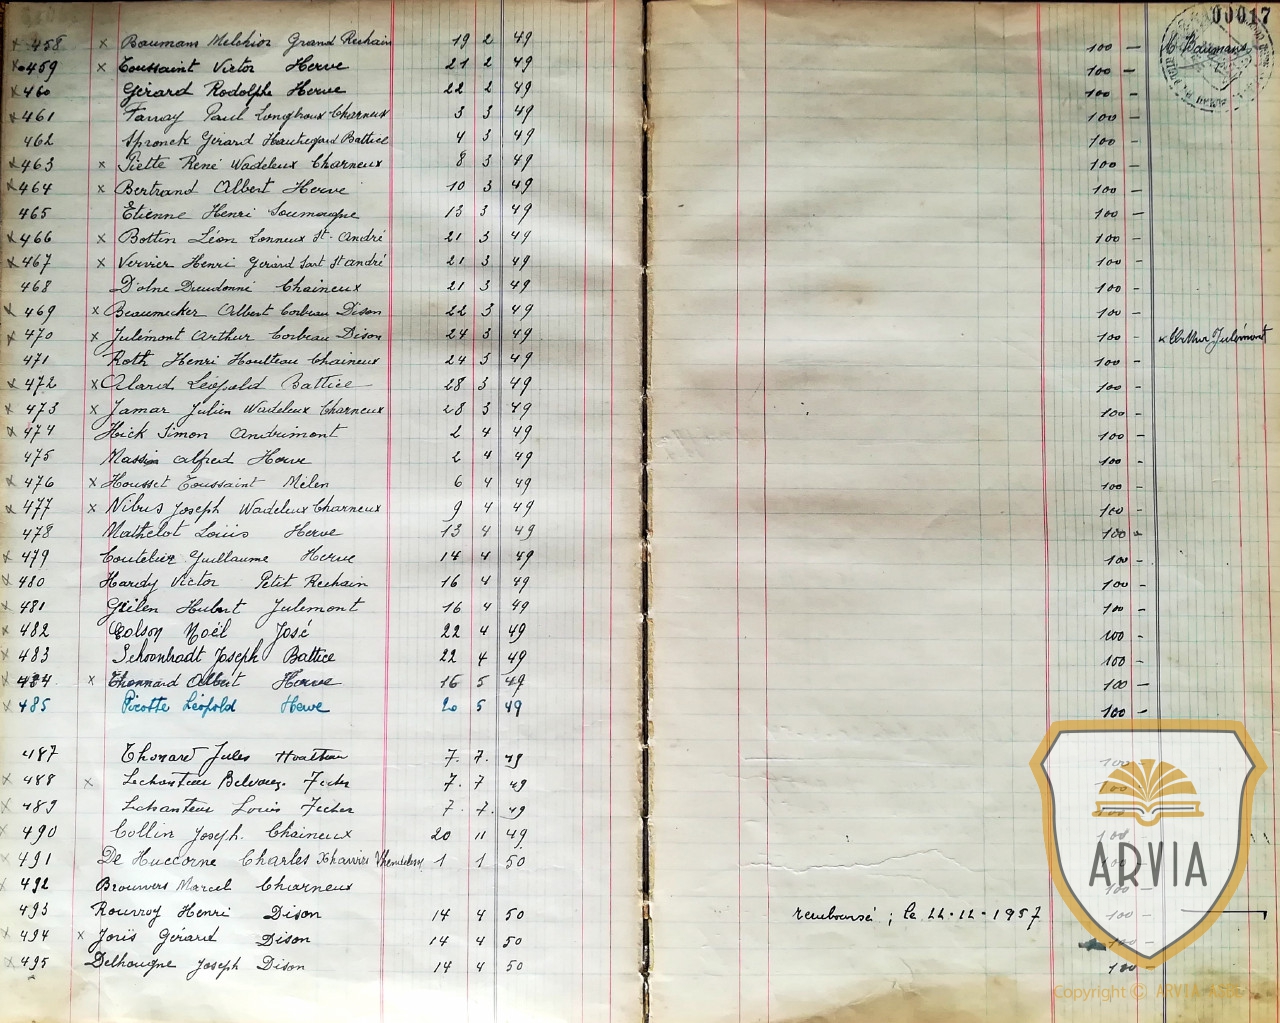 00017
x 458 x Baumans Melchior Grand Rechain 19 2 49 100 - M. Baumans
x 459 x Toussaint Victor Herve 21 2 49 100 -
x 460 Gérard Rodolphe Herve 22 2 49 100 -
x 461 Farray Paul Charneux 3 3 49 100 -
462 Spronck Gérard Battice 4 3 49 100 -
x 463 x Piette René Wadeleux Charneux 8 3 49 100 -
x 464 x Bertrand Albert Herve 10 3 49 100 -
465 Etienne Henri Soumagne 13 3 49 100 -
x 466 x Bottin Léon Lonneux St-André 21 3 49 100 -
x 467 x Vervier Henri Gérard Sart St André 21 3 49 100 -
468 D'olne Dieudonné Chaineux 21 3 49 100 -
x 469 x Beaumecker Albert Corbeau Dison 22 3 49 100 -
x 470 x Julémont Arthur Corbeau Dison 24 3 49 100 - x Arthur Julémont
471 Roth Henri Houlteau Chaineux 24 3 49 100 -
x 472 x Alard Léopold Battice 28 3 49 100 -
x 473 x Jamar Julien Wadeleux Charneux 28 3 49 100 -
x 474 Hick Simon Andrimont 2 4 49 100 -
475 Massin Alfred Herve 2 4 49 100 -
x 476 x Housset Toussaint Mélen 6 4 49 100 -
x 477 x Nibus Joseph Wadeleux Charneux 9 4 49 100 -
478 Mathelot Louis Herve 13 4 49 100 -
x 479 Coutelier Guillaume Herve 14 4 49 100 -
x 480 Hardy Victor Petit Rechain 16 4 49 100 -
x 481 Geilen Hubert Julémont 16 4 49 100 -
x 482 Colson Noël José 22 4 49 100 -
x 483 Schoonbradt Joseph Battice 22 4 49 100 -
x 484 x Thonnard Albert Herve 16 5 49 100 -
x 485 Pirotte Léopold Herve 20 5 49 100 -
487 Thonard Jules 7. 7. 49 100 -
x 488 x Lechanteur 7. 7 49 100 -
x 489 Lechanteur Louis 7. 7. 49 100 -
x 490 Collin Joseph. Chaineux 20 11 49 100 -
x 491 De Huccorne Charles 1 1 50 100 -
x 492 Brouwers Marcel Charneux 100 -
493 Rouvroy Henri Dison 14 4 50 remboursé ; le 22-12-1957 100 -
x 494 x Joris Gérard Dison 14 4 50 100 -
x 495 Delhougne Joseph Dison 14 4 50 100 -
ARVIA
Copyright © ARVIA